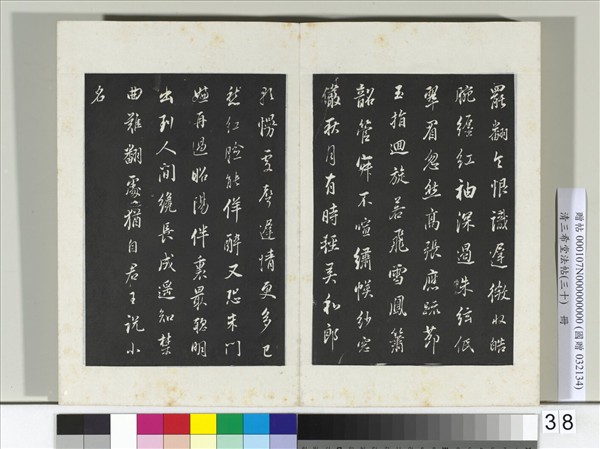 罷翻令恨識遲微收皓
腕纏紅袖深遏珠絃低
翠眉忽然高張應踈節
玉指迴旋若飛雪鳳簫
韶管寂不喧繡幙紗窓
儼秋月有時輕弄和郎
歌慢處聲遲情更多已
愁紅臉能佯醉又恐朱門
難再過昭陽伴裏最聰明
出到人間纔長成遥知禁
曲難翻處猶自君王說小
名
贈帖 000107N000000000 (國贈 032134)
清三希堂法帖(三十) 冊
38